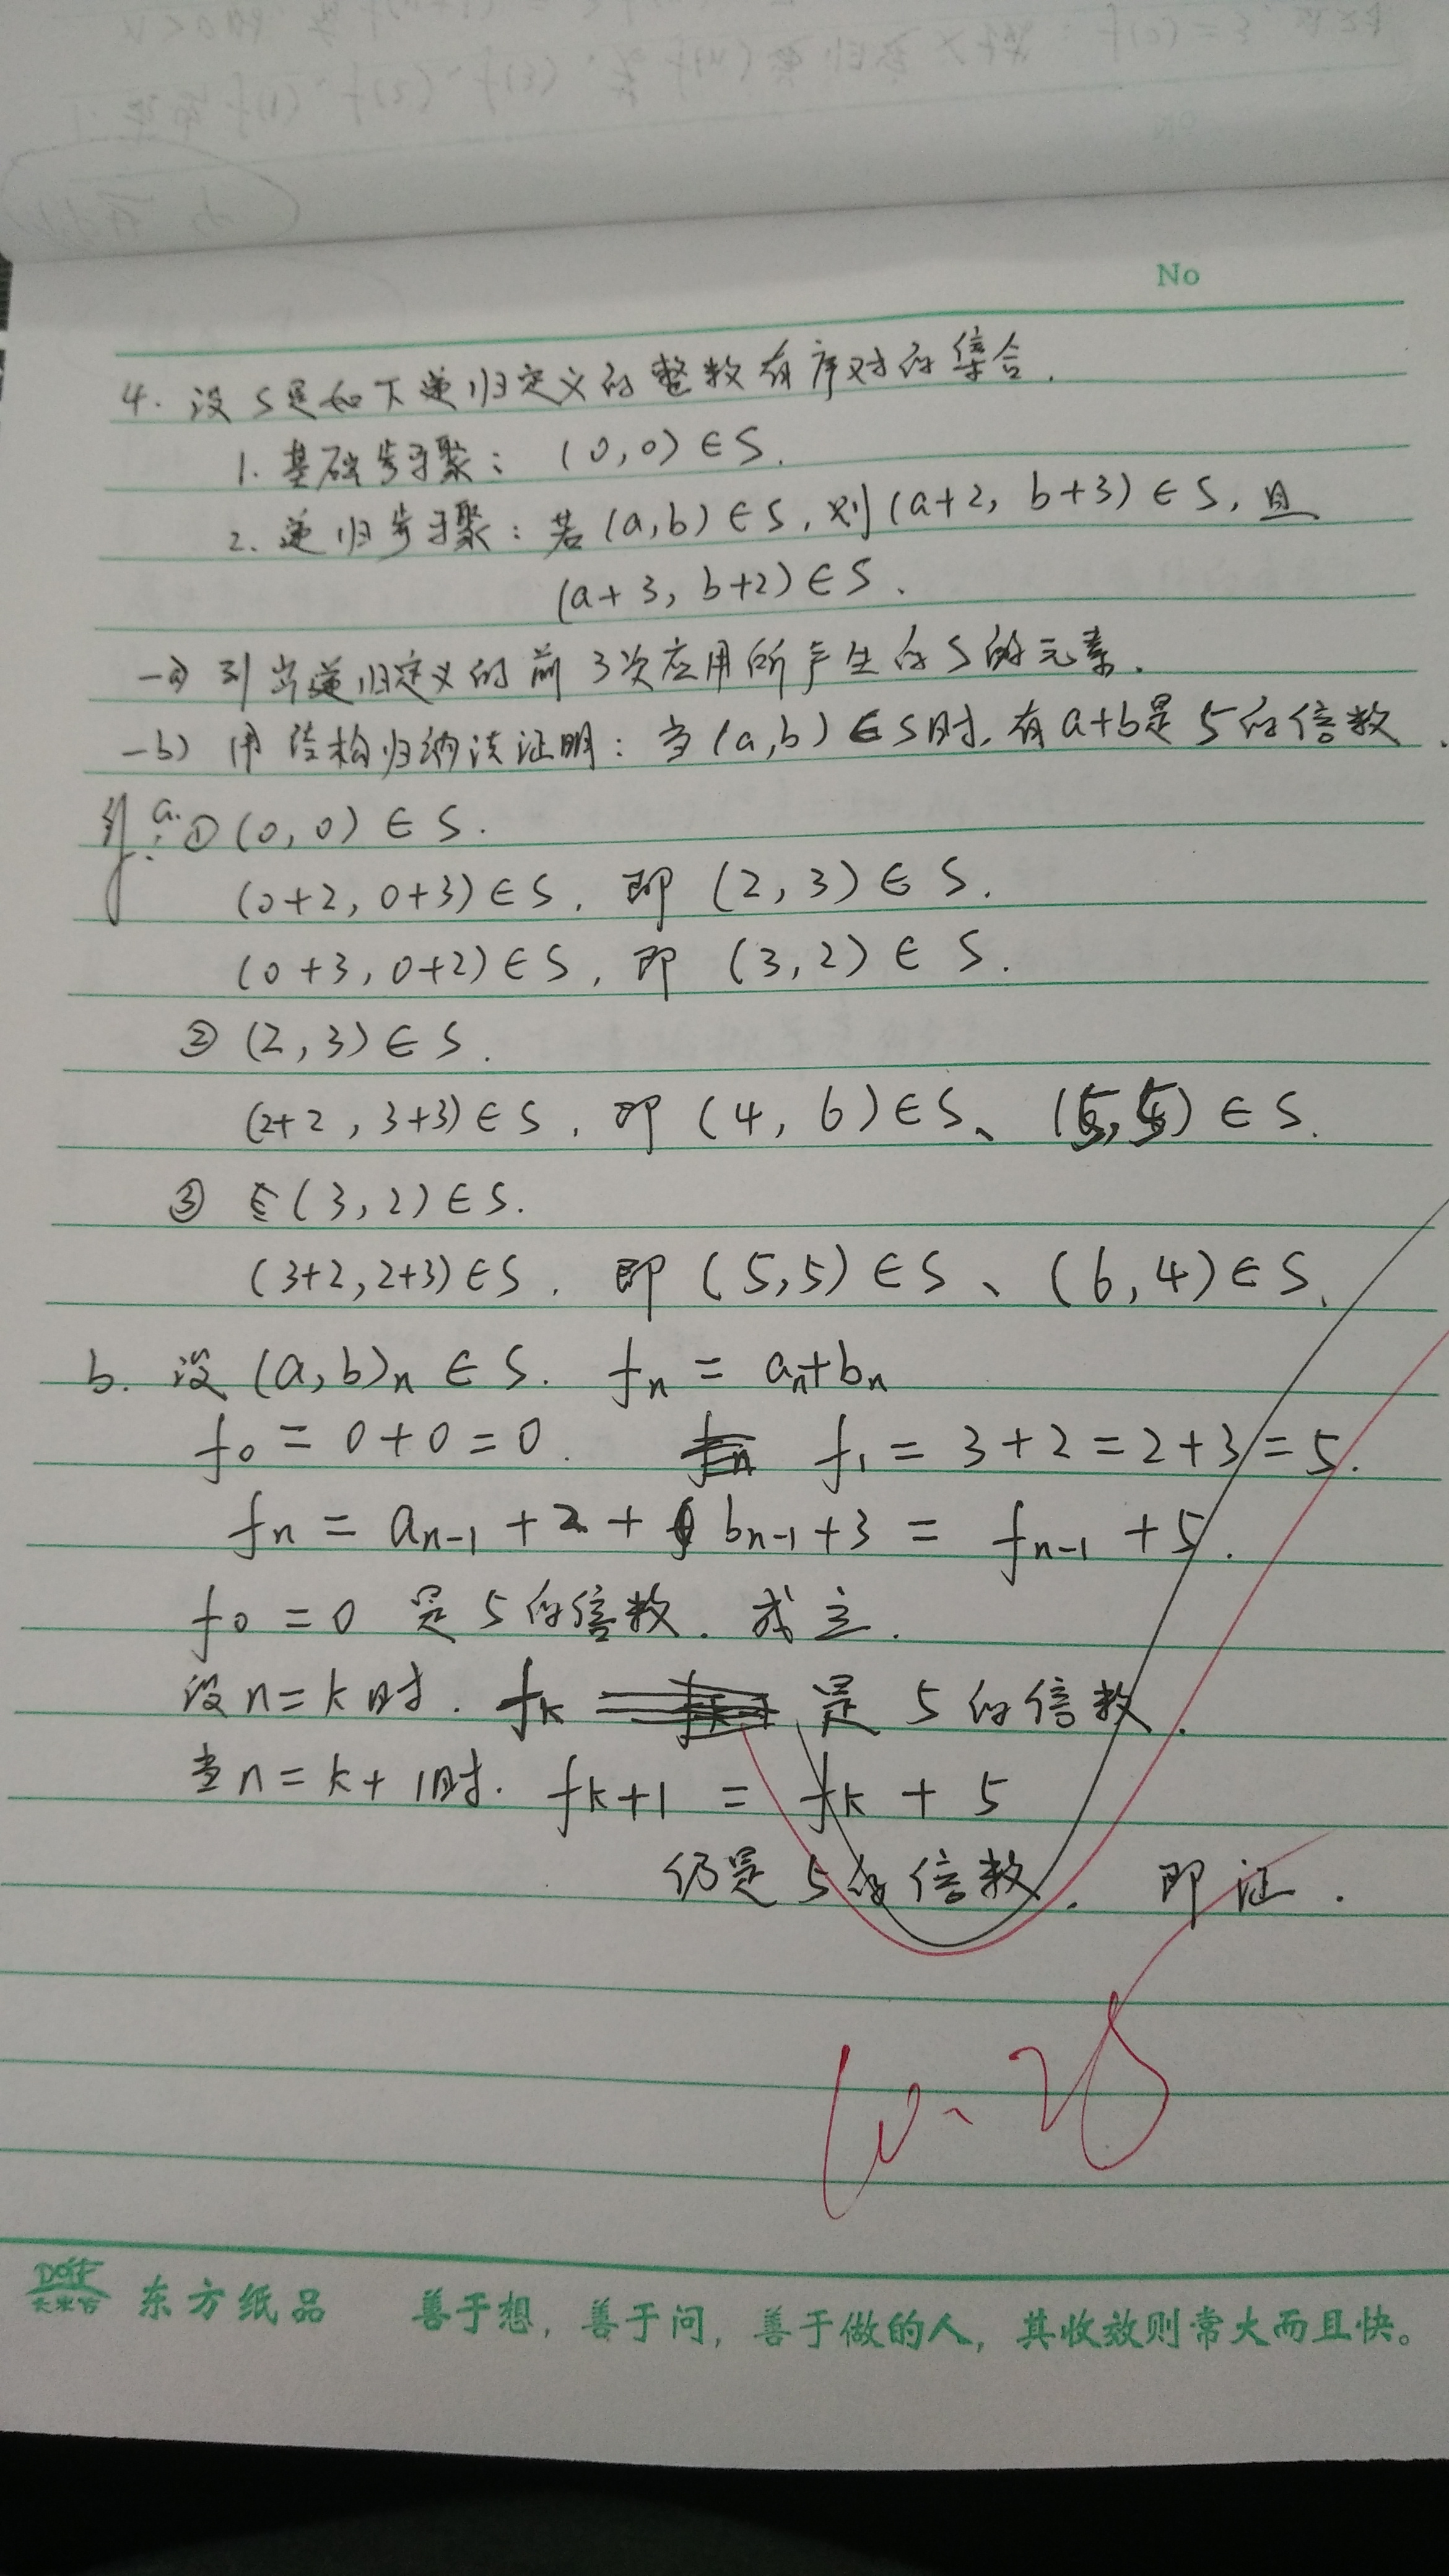 No
4. 设S是如下递归定义的整数有序对的集合.
1. 基础步骤: (0,0) ∈ S.
2. 递归步骤: 若(a,b) ∈ S, 则(a+2, b+3) ∈ S, 且
(a+3, b+2) ∈ S.
-a) 列出递归定义的前3次应用所产生的S的元素.
-b) 用结构归纳法证明: 当(a,b) ∈ S时, 有a+b是5的倍数.
a. ① (0,0) ∈ S.
(0+2, 0+3) ∈ S, 即 (2,3) ∈ S.
(0+3, 0+2) ∈ S, 即 (3,2) ∈ S.
② (2,3) ∈ S.
(2+2, 3+3) ∈ S, 即 (4,6) ∈ S、(5,5) ∈ S.
③ (3,2) ∈ S.
(3+2, 2+3) ∈ S, 即 (5,5) ∈ S、(6,4) ∈ S.
b. 设 (a,b)n ∈ S. fn = an+bn
f0 = 0+0=0. f1 = 3+2=2+3=5.
fn = an-1 +2 + bn-1 +3 = fn-1 +5.
f0 =0 是5的倍数. 成立.
设n=k时. fk 是5的倍数.
当n=k+1时. fk+1 = fk + 5
仍是5的倍数. 即证.
10.28
东方纸品 善于想，善于问，善于做的人，其收效则常大而且快。